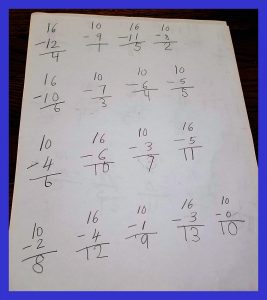 16 10 16 10
-12 -9 -11 -8
4 1 5 2
16 10 10 10
-10 -7 -6 -5
6 3 4 5
10 16 10 16
-4 -6 -3 -5
6 10 7 11
10 16 10 16 10
-2 -4 -1 -3 -0
8 12 9 13 10